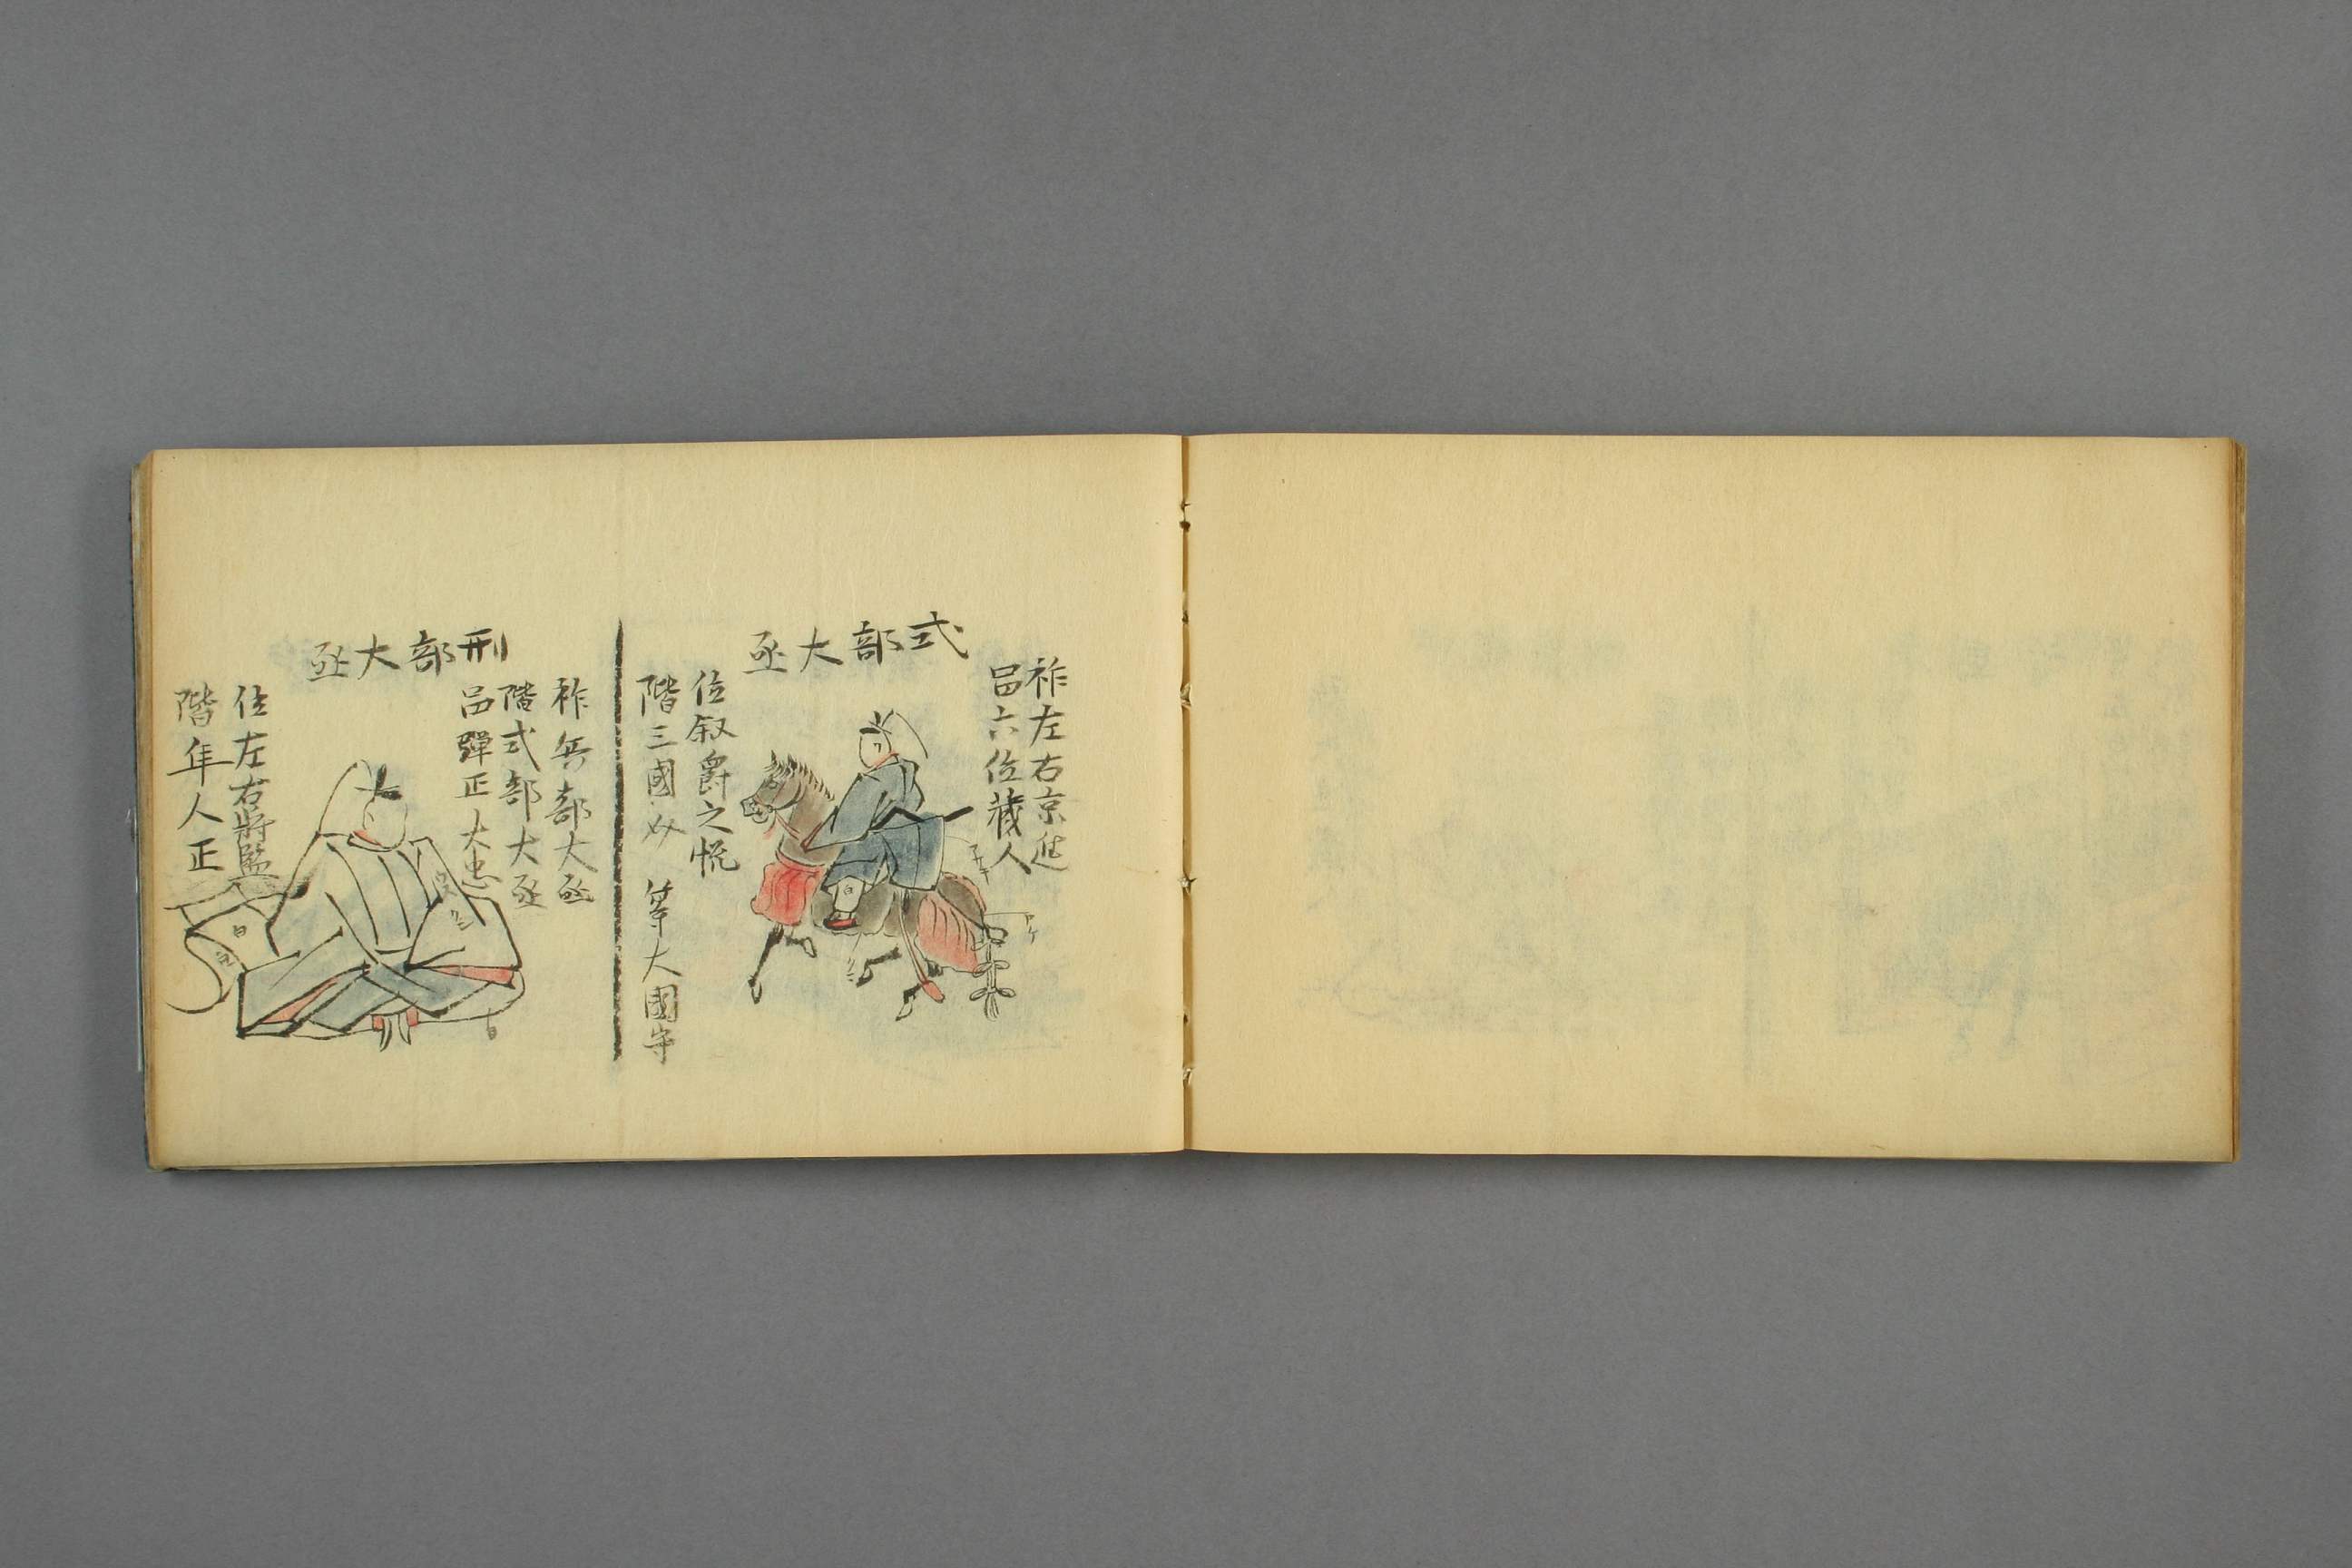 式部大丞
祚左右京進
邑六位蔵人
位叙爵之悦
階三國 等大國守
刑部大丞
祚兵部大丞
階式部大丞
邑彈正大忠
位左右將監
階隼人正
白